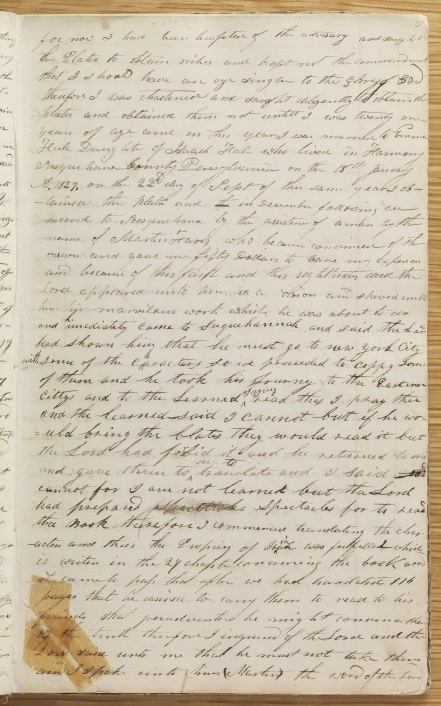 for now I had been tempted of the advisary and saught
the Plates to obtain riches and kept not the commandment
that I should have an eye single to the glory of God
therefore I was chastened and saught diligently to obtain the
plates and obtained them not untill I was twenty one
years of age and in this year I was married to Emma
Hale Daughtr of Isaach Hale who lived in Harmony
Susquehana County Pensylvania on the 18th January
AD. 1827, on the 22d day of Sept of this same year I ob-
tained the plates and in December following we
mooved to Susquehana by the assistence of a man by the
name of Martin Haris who became convinced of th
vision and gave me fifty Dollars to bare my expences
and because of this faith and this righteous deed the
Lord appeared unto him in a vision and shewed unto
him his marvilous work which he was about to do
and imediately came to Suquehannah and said the Lord
had shown him that he must go to new York City
with some of the caracters so we proceeded to coppy some
of them and he took his Journy to the Eastern
Cittys and to the Learned saying read this I pray thee
and the learned said I cannot but if he wo-
uld bring the blates they would read it but
the Lord had fobid it and he returned to me
and gave them to me to translate and I said
cannot for I am not learned but the Lord
had prepared spectacles for to read
the Book therefore I commenced translating the char-
acters and thus the Propicy of Isiah was fulfilled which
is writen in the 29 chapter concerning the book and
it came to pass that after we had translated 116
pages that he desired to carry them to read to his
friends that peradventure he might convince them
of the truth therefore I inquired of the Lord and the
Lord said unto me that he must not take them
and I spake unto him (Martin) the word of the Lord